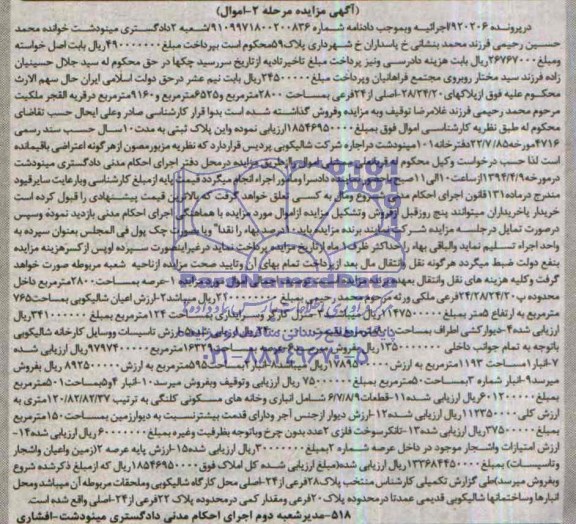 (آگهی مزایده مرحله ۲-اموال)
درپرونده ۷۹۲۰۲۰۶اجرائیه وبموجب دادنامه شماره ۹۱۰۹۹۷۱۸۰۰۲۰۰۸۳۶/شعبه ۲دادگستری مینودشت خوانده محمد
حسین رحیمی فرزند محمد بنشانی خ پاسداران خ شهرداری پلاک۵۹محکوم است بپرداخت مبلغ۴۹۰۰۰۰۰۰۰ریال بابت اصل خواسته
ومبلغ۲۶۷۶۷۰۰۰ریال بابت هزینه دادرسی ونیز پرداخت مبلغ تاخیرتادیه ازتاریخ سررسید چکها در حق محکوم له سید جلال حسینیان
زاده فرزند سید مختار روبروی مجتمع فراهانیان وپرداخت مبلغ۲۴۵۰۰۰۰۰ریال بابت نیم عشر درحق دولت اسلامی ایران حال سهم الارث
محکوم علیه فوق ازپلاکهای۲۸/۲۴/۲۰-اصلی از۲۴فرعی بمساحت ۲۸۰۰مترمربع و۶۵۲۵مترمربع و۹۱۶۰مترمربع درقریه القجر ملکیت
مرحوم محمد رحیمی فرزند غلامرضا توقیف وبه مزایده وفروش گذاشته شده است بدوا قرار کارشناسی صادر وعلی ایحال حسب تقاضای
محکوم له طبق نظریه کارشناسی اموال فوق بمبلغ۱۸۵۴۶۹۵۰۰۰۰ارزیابی نموده واین پلاک ثبتی به مدت۱۰سال حسب سند رسمی
۴۷۱۶مورخه۲۲/۷/۸۵دفترخانه۱۰۱مینودشت دراجاره شرکت شالیکوبی پردیس قراردارد که نظریه مزبورمصون ازهرگونه اعتراضی باقیمانده
است لذا حسب درخواست وکیل محکوم له اموال ازطریق مزایده درمحل دفتر اجرای احکام مدنی دادگستری مینودشت
درمورخه۱۳۹۴/۴/۹ازساعت۱۰الی۱۱صبح دادسرا ومامور اجراء انجام میگردد قیمت پایه ازمبلغ کارشناسی وبارعایت سایرقیود
مندرج درماده۱۳۱قانون اجرای احکام مدنی شروع ومال به کسی تعلق خواهد گرفت که بالاترین قیمت پیشنهادی را قبول کرده است
خریدار یاخریداران میتوانند پنج روزقبل ازفروش وتشکیل مزایده ازاموال مورد مزایده با هماهنگی اجرای احکام مدنی بازدید نموده وسپس
درصورت تمایل درجلسه مزایده شرکت نمایند برنده مزایده باید۱۰درصدبهاء را نقدا" ویا بصورت چک پول فی المجلس بعنوان سپرده به
واحد اجراء تسلیم نماید والباقی بهاء را حداکثر ظرف۱ماه ازتاریخ مزایده پرداخت نماید درغیراینصورت سپرده اوپس ازکسرهزینه مزایده
بنفع دولت ضبط میگردد هرگونه نقل وانتقال مال بعد ازپرداخت تمام بهای آن وتایید صحت مزایده ازناحیه شعبه مربوطه صورت خواهد
گرفت وکلیه هزینه های نقل وانتقال بعهده برنده مزایده ۱-عرصه بمساحت۲۸۰۰مترمربع داخل
محدوده پ۲۸/۲۴/۲۰ ۲۴فرعی ملکی ورثه مرحوم محمد رحیمی بمبلغ ۲۱۰۰۰۰۰۰۰۰ریال میباشد۲-ارزش اعیان شالیکوبی بمساحت۷۶۵
مترمربع به ارتفاع ۵متر بمبلغ۲۱۴۷۵۰۰۰۰۰ریال بمساحت ۱۲۴مترمربع بمبلغ ۳۴۱۰۰۰۰۰۰ریال
ارزیابی شده۴-دیوارکشی اطراف بمساحت ارزیابی شده۵-ارزش تاسیسات ووسایل کارخانه شالیکوبی
باتوجه به تمام جوانب داخلی ۱۳۵۰۰۰۰۰۰۰ریال وبفروش بمساحت۱۶۳۲۹مترمربع۹۷۹۷۴۰۰۰۰۰ریال ارزیابی شده
۷-انبار۱مساحت ۱۱۹۳مترمربع به ارزش ۱۷۸۹۵۰۰۰۰۰ریال میباشد۸-انبار۲بمساحت۵۹۵مترمربع به ارزش ۸۹۲۵۰۰۰۰۰ریال بفروش
میرسد۹-انبار شماره ۳بمساحت۵۰مترمربع بمبلغ ۷۵۰۰۰۰۰۰ریال ارزیابی وتوقیف وبفروش میرسد۱۰-انبار ۴و۵بمساحت۵۰۱مترمربع
بمبلغ ۶۰۱۲۰۰۰۰۰ریال ارزیابی شده۱۱-قطعات۶/۷/۸/۹شامل انباری وخانه های مسکونی کلنگی به ترتیب ۱۲۰/۸۲/۸۲/۳۷متری به
ارزش کلی ۱۱۲۳۵۰۰۰۰ریال ارزیابی شده۱۲-ارزش دیوار ازجنس آجر ودارای قدمت بیشترنسبت به دیوارزمین بمساحت۱۵۰مترمربع
بمبلغ ۳۷۵۰۰۰۰۰ریال ارزیابی شده۱۳-تانکرسوخت فلزی ۲عدد بدون چرخ وباتوجه بظرفیت وغیره بمبلغ۶۰۰۰۰۰۰۰ریال ارزیابی شده۱۴-
ارزش امتیازات واشجار موجود در داخل عرصه شماره ۲بمبلغ ۳۰۰۰۰۰۰۰ریال ارزیابی شده۱۵-ارزش پایه عرصه ۲(زمین واعیان واشجار
وتاسیسات) بمبلغ۱۳۳۶۸۴۴۵۰۰۰ریال ارزیابی شده(مبلغ ارزیابی شده کل املاک فوق۱۸۵۴۶۹۵۰۰۰۰ریال که ازمبلغ ذکرشده شروع
وبفروش میرسد)طی گزارش تکمیلی کارشناس منتخب پلاک۲۸فرعی از۲۴-اصلی محل کارگاه شالیکوبی وملحقات مربوطه آن میباشد ومحل
انبارها وساختمانها شالیکوبی قدیمی عمدتا درمحدوده پلاک۲۰فرعی ومقدار کمی درمحدوده پلاک ۲۲فرعی از۲۴-اصلی واقع شده است
۵۱۸-مدیرشعبه دوم اجرای احکام مدنی دادگستری مینودشت-افشاری
ParsNamadData
۰۲۱-۸۸۳۴۹۶۷۰-۵